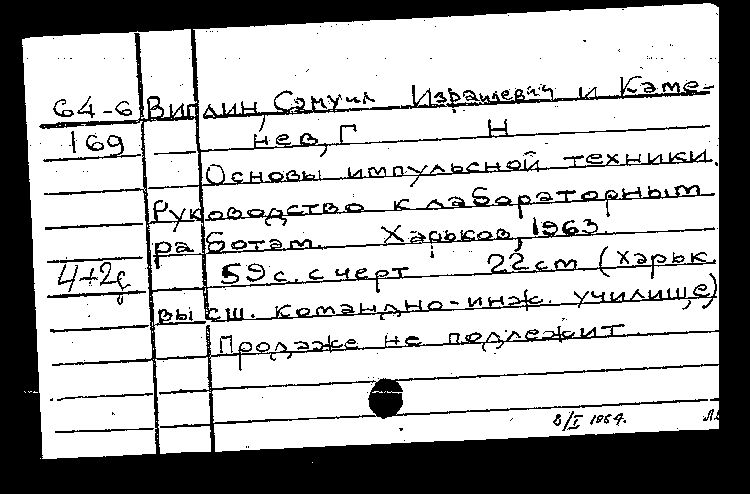 64-6 Виглин, Самуил Израилевич и Каме-
169 нев, Г Н
Основы импульсной техники.
Руководство к лабораторным
работам. Харьков, 1963.
4+2д 59 с. с черт 22 см (Харьк.
высш. командно-инж. училище)
Продаже не подлежит.
8/I 1964.